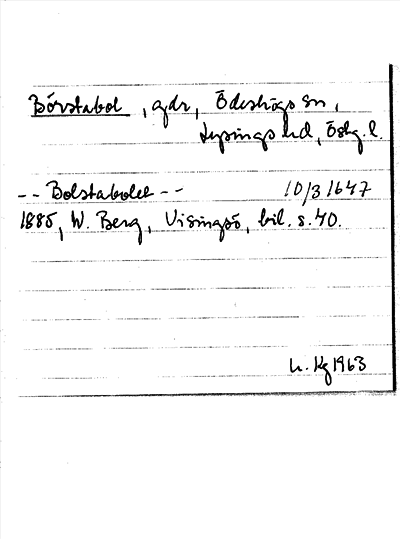 Börstabol, gdr, Ödeshögs sn,
Lysings hd, Östg. l.
-- Bolstabolet -- 10/3 1647
1885, W. Berg, Visingsö, bil. s. 40.
h. Kg 1963